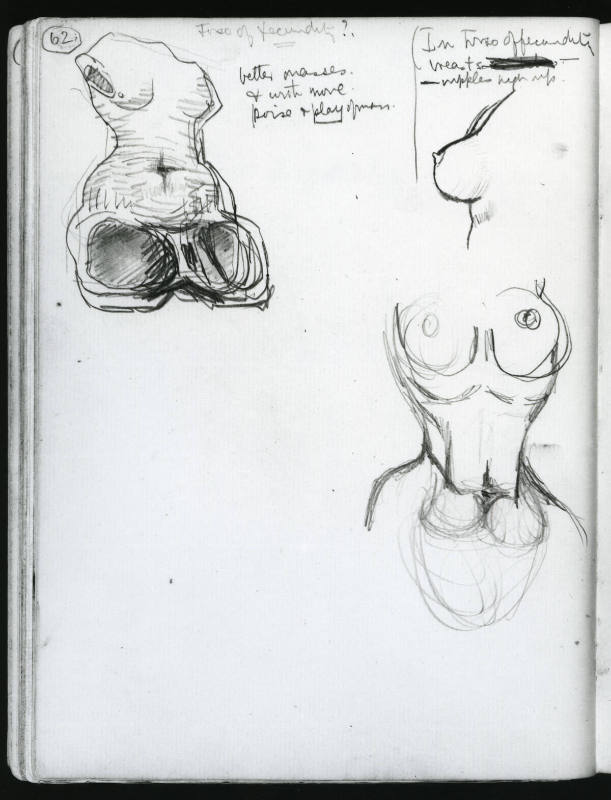 62.
Torso of Fecundity?
better masses.
& with more
poise & play of mass.
In Torso of fecundity
breasts
— nipples high up.